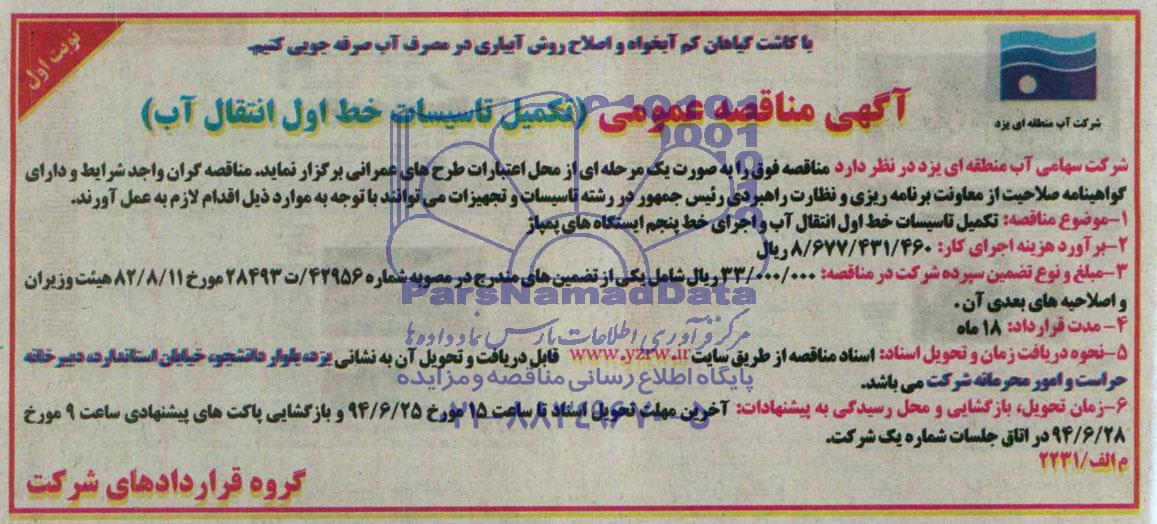 با کاشت گیاهان کم آبخواه و اصلاح روش آبیاری در مصرف آب صرفه جویی کنیم.
نوبت اول
شرکت آب منطقه ای یزد
آگهی مناقصه عمومی (تکمیل تاسیسات خط اول انتقال آب)
شرکت سهامی آب منطقه ای یزد در نظر دارد مناقصه فوق را به صورت یک مرحله ای از محل اعتبارات طرح های عمرانی برگزار نماید. مناقصه گران واجد شرایط و دارای
گواهینامه صلاحیت از معاونت برنامه ریزی و نظارت راهبردی رئیس جمهور در رشته تاسیسات و تجهیزات می توانند با توجه به موارد ذیل اقدام لازم به عمل آورند.
۱-موضوع مناقصه: تکمیل تاسیسات خط اول انتقال آب و اجرای خط پنجم ایستگاه های پمپاژ
۲-برآورد هزینه اجرای کار: ۸/۶۷۷/۴۳۱/۴۶۰ ریال
۳-مبلغ و نوع تضمین سپرده شرکت در مناقصه: ۳۳/۰۰۰/۰۰۰ ریال شامل یکی از تضمین های مندرج در مصوبه شماره ۴۲۹۵۶/ت ۲۸۴۹۳ مورخ ۸۲/۸/۱۱ هیئت وزیران
و اصلاحیه های بعدی آن.
۴- مدت قرارداد: ۱۸ ماه
۵-نحوه دریافت زمان و تحویل اسناد: اسناد مناقصه از طریق سایت www.yzrw.ir قابل دریافت و تحویل آن به نشانی یزد، بلوار دانشجو، خیابان استاندارد، دبیرخانه
حراست و امور محرمانه شرکت می باشد.
۶-زمان تحویل، بازگشایی و محل رسیدگی به پیشنهادات: آخرین مهلت تحویل اسناد تا ساعت ۱۵ مورخ ۹۴/۶/۲۵ و بازگشایی پاکت های پیشنهادی ساعت ۹ مورخ
۹۴/۶/۲۸ در اتاق جلسات شماره یک شرکت.
م الف/۲۲۳۱
گروه قراردادهای شرکت
ParsNamadData
مرکز فرآوری اطلاعات پارس نماد داده ها
پایگاه اطلاع رسانی مناقصه و مزایده